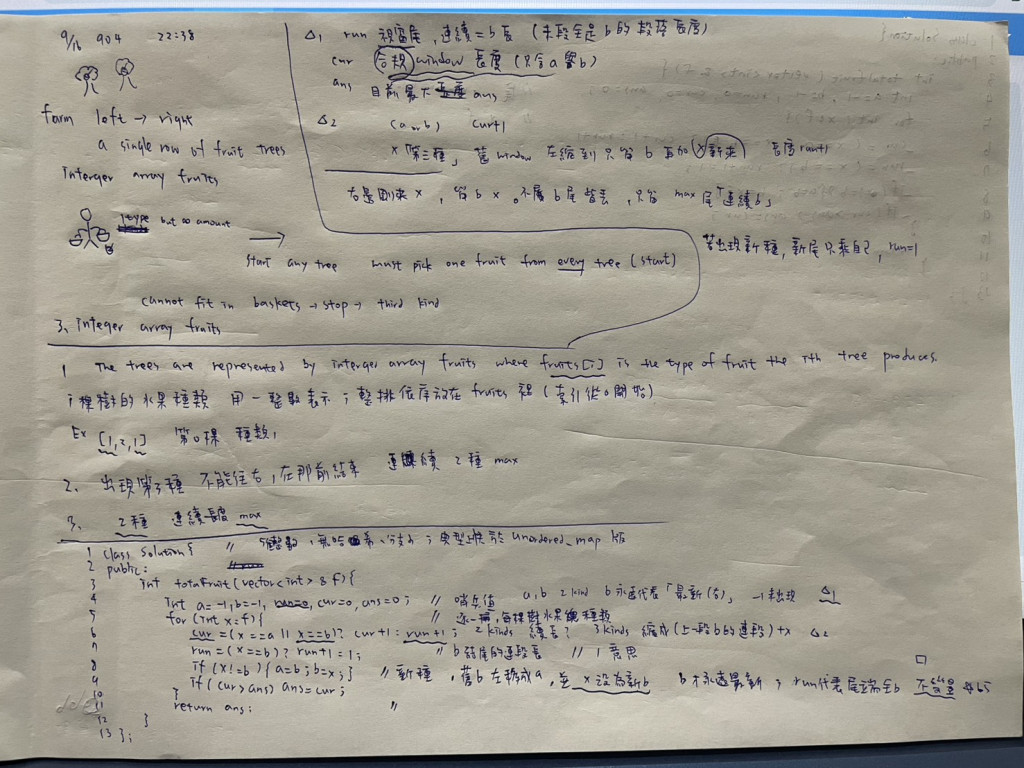 9/16 904 22:38
farm left → right
a single row of fruit trees
Interger array fruits
1 type but ∞ amount
→
start any tree must pick one fruit from every tree (start)
cannot fit in baskets → stop → third kind
3. integer array fruits
△1 run 視窗尾,連續=b長 (末段全是b的段落長度)
cur 合規 window 長度 (只含a與b)
ans 目前最大 ans
△2 (a or b) cur+1
x「第三種」舊window 左縮到只留b再加(x新來) 長度run+1
右是剛來x,留b x。不屬b尾皆丟,只留max尾「連續b」
若出現新種,新尾只乘自己,run=1
1 The trees are represented by interger array fruits where fruits[i] is the type of fruit the ith tree produces.
i棵樹的水果種類 用一整數表示;整排依序放在fruits裡(索引從0開始)
Ex [1,2,1] 第0棵 種類1
2. 出現第3種 不能往右,在那前結束 連續2種 max
3. 2種 連續長度 max
1 class Solution{ // 分支少;典型快於unordered_map版
2 public:
3 int totalFruit(vector<int>& f){
4 int a=-1,b=-1, run=0, cur=0, ans=0; // 哨兵值 a,b 2 kind b永遠代表「最新(右)」 -1未出現 △1
5 for(int x:f){ // 逐一掃,每棵樹水果種類
6 cur=(x==a || x==b)? cur+1: run+1; 2 kinds 續長? 3 kinds 縮成(上一段b的連段)+x △2
7 run=(x==b)? run+1:1; // b結尾的連段長 // 1意思
8 if(x!=b){a=b;b=x;} // 新種,舊b左移成a,至x設為新b b永遠最新;run代表尾端全b
9 if(cur>ans) ans=cur;
10 }
11 return ans; //
12 }
13 };